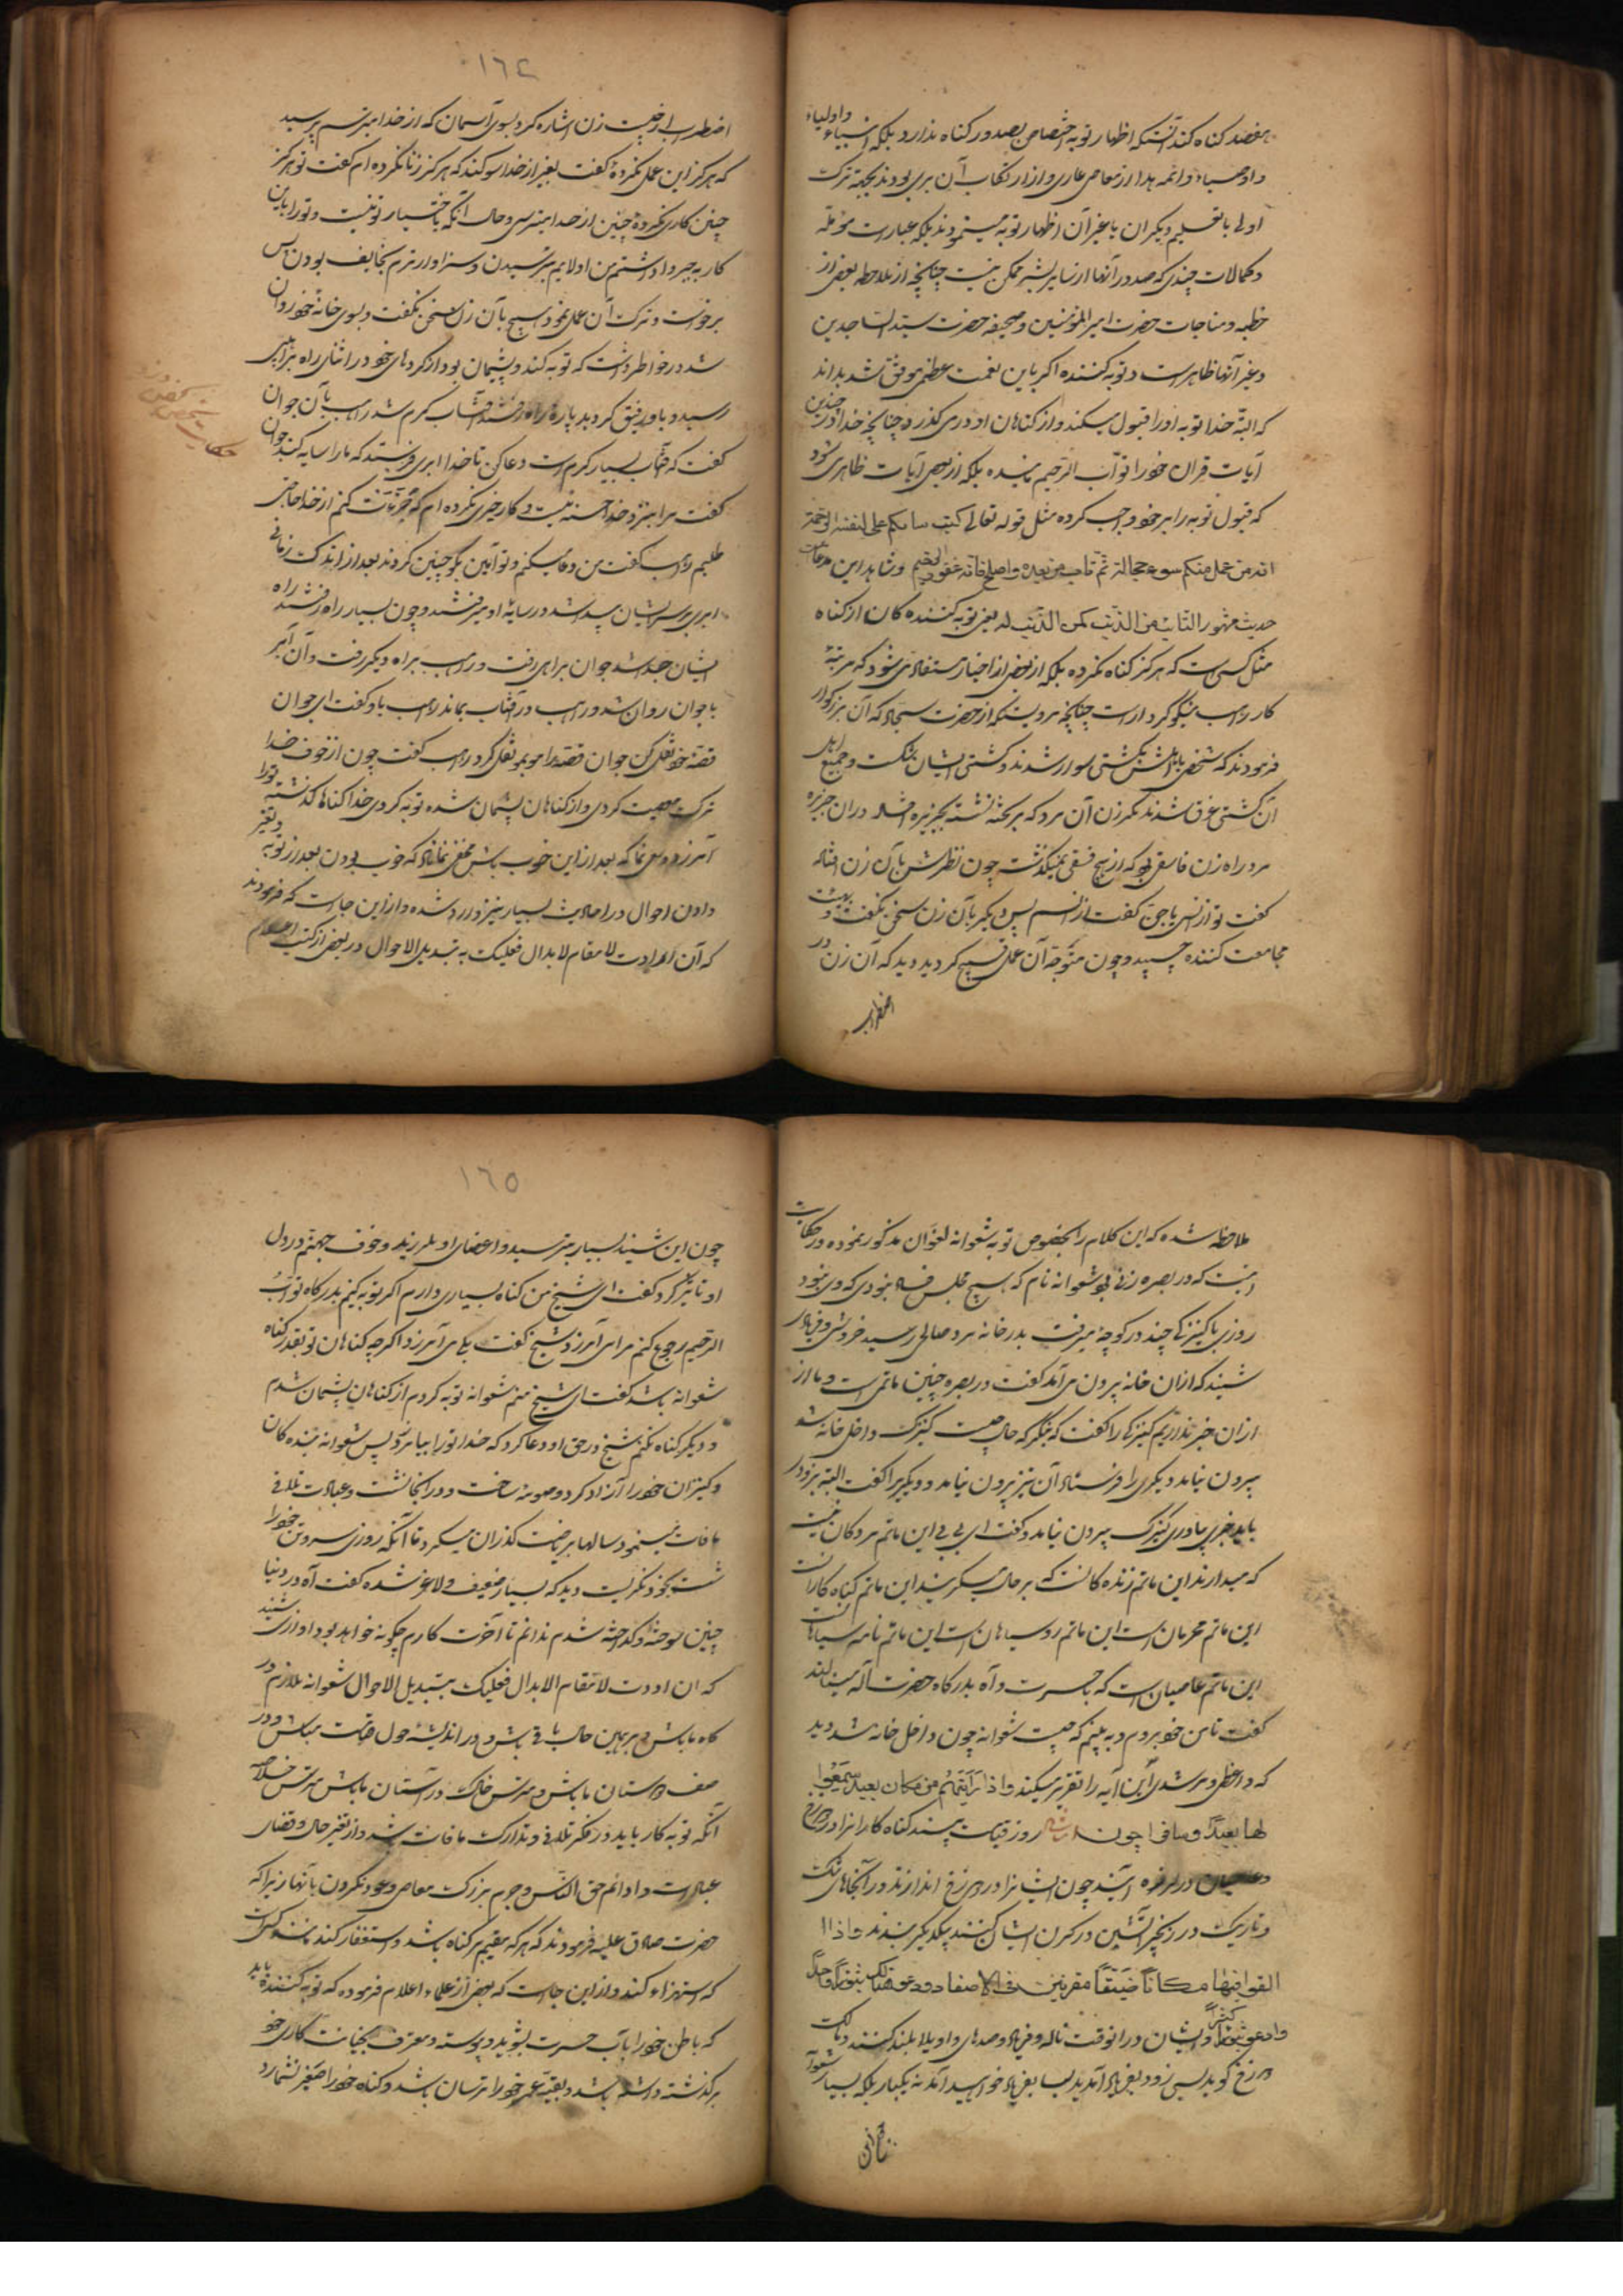 بقصد کناه کند آنستکه اظهار توبه اختصاص بصدور کناه ندارد بلکه انبیاء واولیاء
واوصیاء وائمه هدا از معاصی عاری واز ارتکاب آن بری بودند بجهة ترک
اولی یا تعلیم دیکران یا غیر آن اظهار توبه مینمودند بلکه عبارت
وکمالات چندی که صدور آنها از سایر بشر ممکن نیست چنانچه از ملاحظه بعضی از
خطبه ومناجات حضرت امیرالمؤمنین وصحیفه حضرت سید الساجدین
وغیر آنها ظاهر است وتوبه کننده اکر باین نعمت عظمی موفق شد بداند
که البته خدا توبه او را قبول میکند واز کناهان او در می کذرد چنانچه خدا در چندین
آیات قران خود را تواب الرحیم نامیده بلکه از بعضی آیات ظاهر می شود
که قبول توبه را بر خود واجب کرده مثل قوله تعالی کتب ربکم علی نفسه الرحمة
انه من عمل منکم سوء بجهالة ثم تاب من بعده واصلح فانه غفور رحیم وشاهد این مدعاست
حدیث مشهور التائب من الذنب کمن لا ذنب له یعنی توبه کننده کان از کناه
مثل کسی است که هرکز کناه نکرده بلکه از بعضی از اخبار مستفاد می شود که مرتبهٔ
کار راهب نیکو کردار است چنانچه مرویستکه از حضرت سجاد که آن بزرکوار
فرمودند که شخصی با اهلش بکشتی سوار شدند وکشتی ایشان شکست وجمیع اهل
آن کشتی غرق شدند مکر زن آن مرد که بر تخته نشسته بجزیره افتاد در ان جزیره
مرد راه زن فاسقی بود که از هیچ فسقی نمیکذشت چون نظرش بآن زن افتاد
کفت تو از انس یا جن کفت از انسم پس دیکر بآن زن سخنی نکفت وبهیئت
مجامعت کننده چسپید وچون متوجه آن عمل قبیح کردید دید که آن زن در
اضطراب
١٦٤
اضطراب از چیست زن اشاره کرد بسوی آسمان که از خدا میترسم پرسید
که هرکز این عمل نکردهٔ کفت بغیر از خدا سوکند که هرکز زنا نکرده ام کفت تو هرکز
چنین کاری نکردهٔ چنین از خدا میترسی وحال آنکه باختیار تو نیست وتو را باین
کار بجبر وا داشتم من اولایم بترسیدن وسزاوار ترم بخایف بودن پس
برخواست وترک آن عمل نمود وهیچ بآن زن سخن نکفت وبسوی خانهٔ خود روان
شد ودر خواطر داشت که توبه کند وپشیمان بود از کردهای خود در اثنای راه براهبی
رسید وباو رفیق کردید پاره راه رفتند آفتاب کرم شد راهب بآن جوان
حکایت شخص دزد
کفت که آفتاب بسیار کرم است دعا کن تا خدا ابری فرستد که ما را سایه کند جوان
کفت مرا نزد خدا حسنه نیست وکار خیری نکرده ام که جرئت کنم از خدا حاجتی
طلبم راهب کفت من دعا میکنم وتو آمین بکو چنین کردند بعد از اندک زمانی
ابری بر سر ایشان پیدا شد ودر سایهٔ او میرفتند وچون بسیار راه رفتند راه
ایشان جدا شد جوان براهی رفت وراهب براه دیکر رفت وآن ابر
با جوان روان شد وراهب در آفتاب بماند راهب باو کفت ای جوان
قصهٔ خود نقل کن جوان قصه را موبمو نقل کرد راهب کفت چون از خوف خدا
ترک معصیت کردی واز کناهان پشیمان شده توبه کردی خدا کناهای کذشته تورا
آمرزد وسعی نما که بعد از این خوب باشی مخفی نماناد که خوب بودن بعد از توبه وتغیر
دادن احوال در احادیث بسیار نیز وارد شده واز این جاست که فرمودند
که آن اردت لا مقام لابدال فعلیک به تبدیل الاحوال در بعضی از کتب اعلام
ملاحظه شده که این کلام را بخصوص توبه شعوانه لغوان مذکور نموده ودر حکایت
اینست که در بصره زنی بود شعوانه نام که هیچ مجلس فساد نبودی که وی نبود
روزی با کنیزکی چند در کوچهٔ میرفت بدر خانه مرد صالحی رسید خروشی وفریاد
شنید که از ان خانه بیرون می آمد کفت در بصره چنین ماتمی است وما از
از ان خبر نداریم کنیزکی را کفت که بنکر که حال چیست کنیزک داخل خانه شد
بیرون نیامد ودیکری را فرستاد آن نیز بیرون نیامد ودیکریرا کفت البته بزودی
باید خبری بیاوری کنیزک بیرون نیامد وکفت ای بی بی این ماتم مردکان نیست
که میدارند این ماتم زنده کانست که بر حال میکریند این ماتم کناه کارانست
این ماتم مجرمان است این ماتم روسیاهان است این ماتم نامه سیاهانست
این ماتم عاصیان است که با حسرت وآه بدرکاه حضرت اله مینالند
کفت تا من خود بروم وبه بینم که چیست شعوانه چون داخل خانه شد دید
که واعظی ومرشدی این آیه را تقریر میکند واذا رأیتهم من مکان بعید سمعوا
لها بعیدا وصافرا چون روز قیامت بیند کناه کاران را دوزخ
وعاصیان در لرزه آیند چون ایشانرا در دوزخ اندازند ودر آنجاهای تنک
وتاریک در زنجیر آتشین در کردن ایشان کنند بیکدیکر ببندند واذا
القوا فیها مکانا ضیقا مقرنین فی الاصفاد دعوا هنالک ثبورا واحدا
وادعوا ثبورا کثیرا وایشان در انوقت ناله وفریاد وصدهای واویلا بلند کنند ومالک
دوزخ کوید بس زود بفریاد آمدید بسا بفریاد خواهید آمد نه یکبار بلکه بسیار شعوانه
١٦٥
چون این شنید بسیار بترسید واعضای او بلرزید وخوف جهنم در دل
او تاثیر کرد کفت ای شیخ من کناه بسیاری دارم اکر توبه کنم بدرکاه تواب
الرحیم رجوع کنم مرا می آمرزد شیخ کفت بلی می آمرزد اکرچه کناهان تو بقدر کناه
شعوانه باشد کفت ای شیخ منم شعوانه توبه کردم از کناهان پشیمان شدم
ودیکر کناه نکنم شیخ در حق او دعا کرد که خدا تو را بیامرزد پس شعوانه بنده کان
وکنیزان خود را آزاد کرد وصومعه ساخت ودر انجا نشست وعبادت تلافی
مافات مینمود وسالها بریاضت کذران میکرد تا آنکه روزی سر وتن خود را
شست بخود نکریست دید که بسیار ضعیف ولاغر شده کفت آه در دنیا
چنین سوخته وکداخته شدم ندانم تا آخرت کارم چکونه خواهد بود آوازی شنید
که ان اردت لا مقام الابدال فعلیک بتبدیل الاحوال شعوانه ملازم در
کاه ما باش وبر همین حال باقی باش ودر اندیشهٔ هول قیامت مباش ودر
صف دوستان ما باش ومترس خاک در آستان ما باش مترس خلاصه
آنکه توبه کار باید در فکر تلافی وتدارک مافات باشد واز تغیر حال وقضای
عبادت وادای حق الناس وجرم بزرک معاصی وعود نکردن بآنها زیرا که
حضرت صادق علیه فرمودند که هرکه مقیم بر کناه باشد واستغفار کند مانند کسی است
که استهزاء کند واز این جاست که بعضی از علماء اعلام فرموده که توبه کننده باید
که باطن خود را بآب حسرت بشوید وپیوسته ومعترف بجنایت کاری خود
بر کذشته داشته باشد وبقیهٔ عمر خود را ترسان باشد وکناه خود را صغیر نشمارد